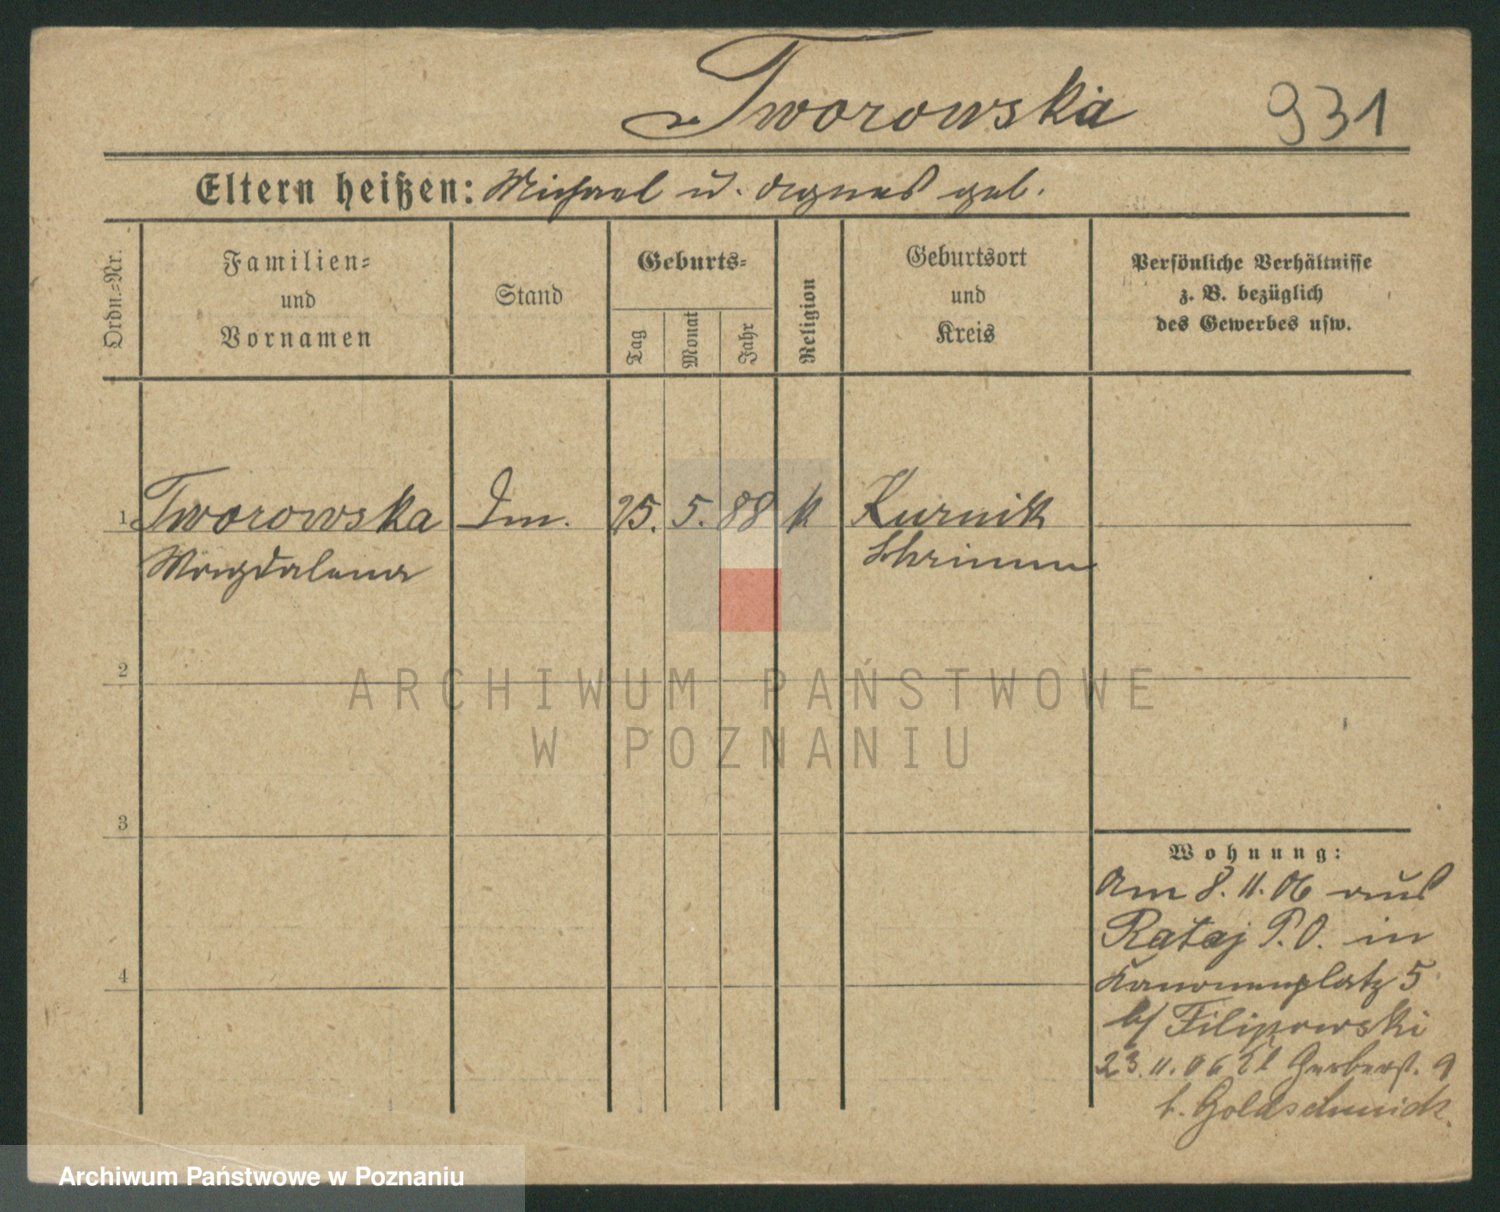 Tworowska 931
Eltern heißen: Michael u. Agnes geb.
Ordn.-Nr.
Familien-
und
Vornamen
Stand
Geburts-
Tag
Monat
Jahr
Religion
Geburtsort
und
Kreis
Persönliche Verhältnisse
z. B. bezüglich
des Gewerbes usw.
1 Tworowska 25. 5. 88 k Kurnik
Magdalena Schrimm
2
ARCHIWUM PAŃSTWOWE
W POZNANIU
3
Wohnung:
Am 8. 11. 06 aus
Rataj P. O. in
4
Kanonenplatz 5
b/ Filipowski
23. 11. 06 Kl Gerberst. 9
b. Goldschmidt
Archiwum Państwowe w Poznaniu